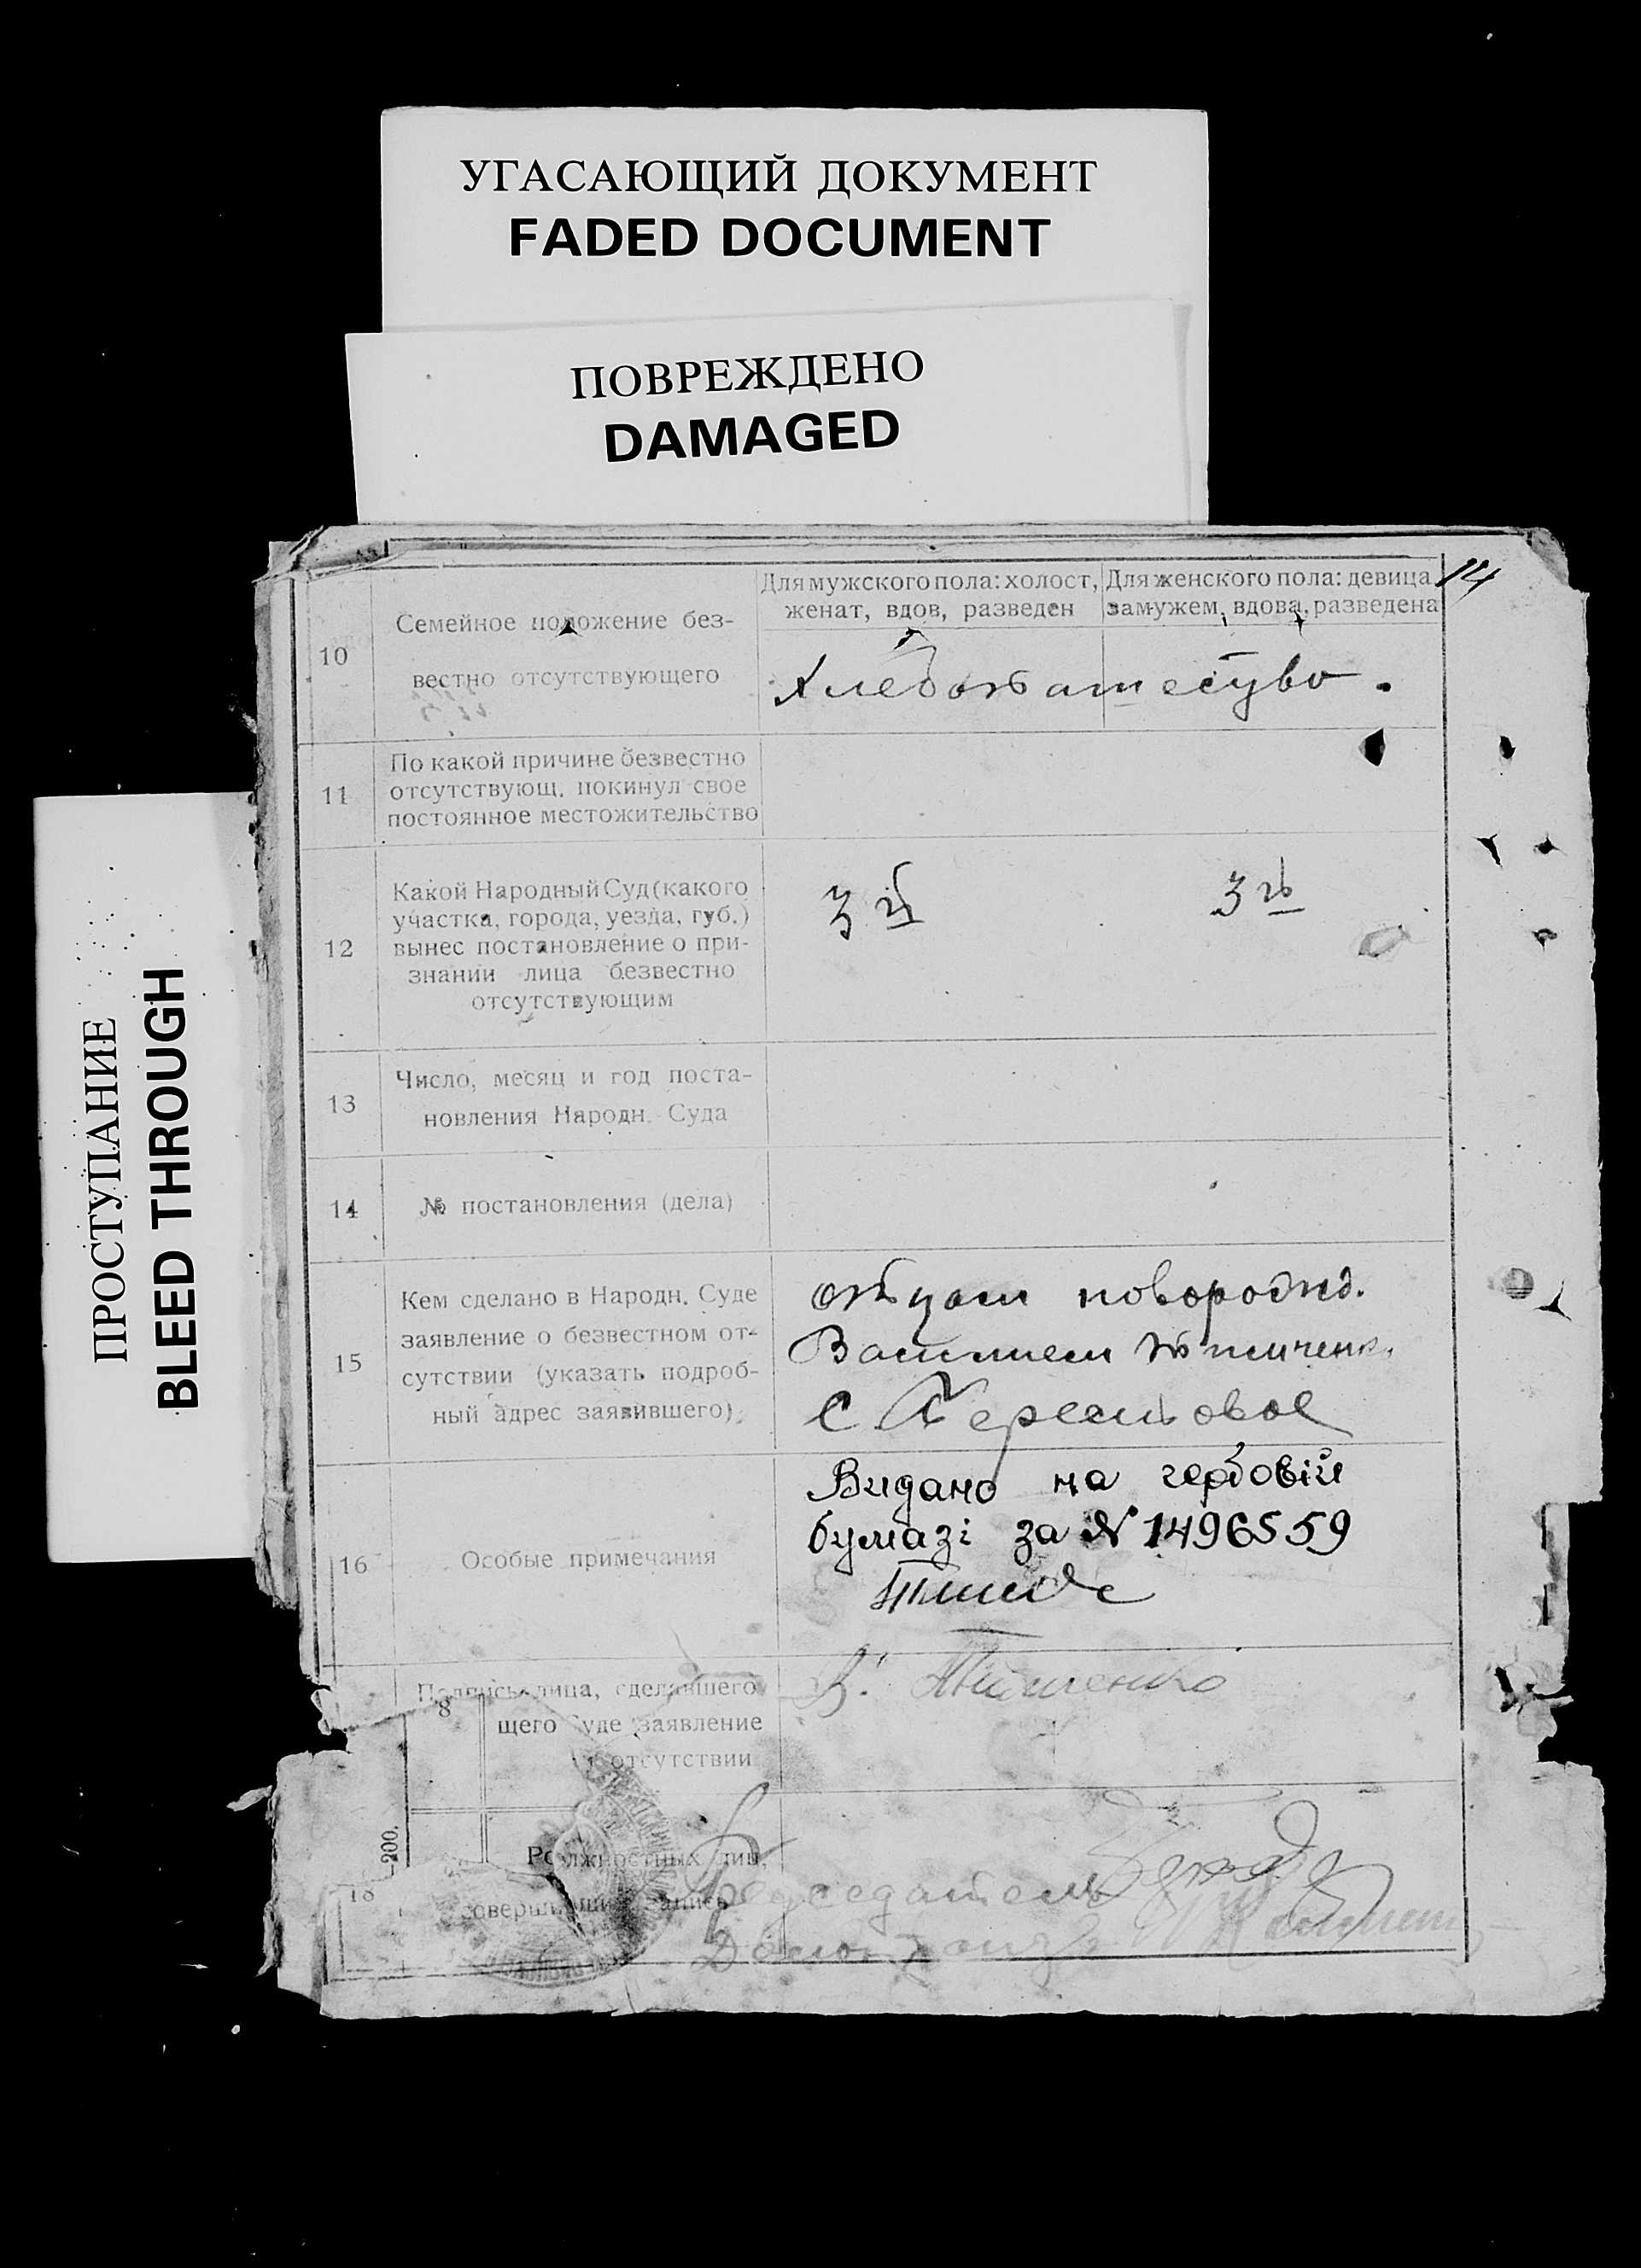 УГАСАЮЩИЙ ДОКУМЕНТ
FADED DOCUMENT
ПОВРЕЖДЕНО
DAMAGED
ПРОСТУПАНИЕ
BLEED THROUGH
14
10
Семейное положение без-
вестно отсутствующего
Для мужского пола: холост,
женат, вдов, разведен
Для женского пола: девица,
замужем, вдова, разведена
11
По какой причине безвестно
отсутствующ. покинул свое
постоянное местожительство
12
Какой Народный Суд (какого
участка, города, уезда, губ.)
вынес постановление о при-
знании лица безвестно
отсутствующим
3й
3й
13
Число, месяц и год поста-
новления Народн. Суда
14
№ постановления (дела)
15
Кем сделано в Народн. Суде
заявление о безвестном от-
сутствии (указать подроб-
ный адрес заявившего)
отцом новорожд.
Василием
с
16
Особые примечания
Видано на гербовій
бумазі за № 1496559
Подпись лица, сделавшего
8
щего Суде заявление
отсутствии
-200.
18
Должностных лиц,
совершивших запись
Председатель
Делопроизв.